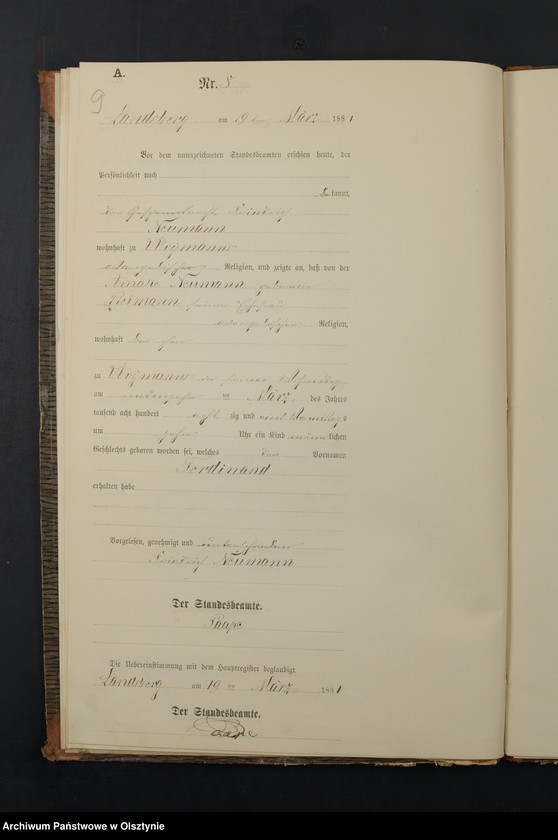 A.
Nr. 5
9
Landsberg am 19 ten März 1881
Vor dem unterzeichneten Standesbeamten erschien heute, der
Persönlichkeit nach
be kannt,
Friedrich
Neumann
wohnhaft zu Woymanns
evangelischer Religion, und zeigte an, daß von der
Amalie Neumann geborenen
Reimann seiner Ehefrau
evangelischer Religion,
wohnhaft bei ihm
zu Woymanns in seiner Wohnung
am ten März des Jahrs
tausend acht hundert acht zig und eins
um zehn Uhr ein Kind männ lichen
Geschlechts geboren worden sei, welches den Vornamen
Ferdinand
erhalten habe
Vorgelesen, genehmigt und unterschrieben
Friedrich Neumann
Der Standesbeamte.
Die Uebereinstimmung mit dem Hauptregister beglaubigt
Landsberg am 19 ten März 1881
Der Standesbeamte.
Archiwum Państwowe w Olsztynie